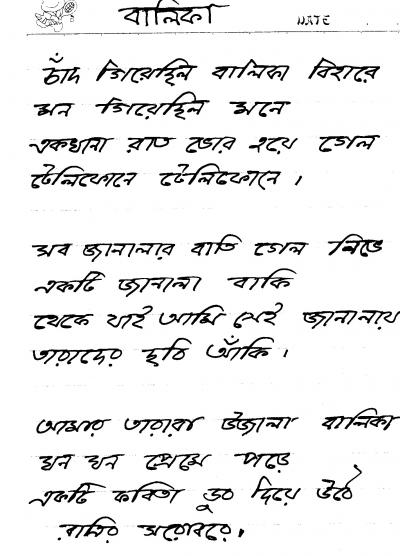 বালিকা
DATE
চাঁদ গিয়েছিল বালিকা বিহারে
মন গিয়েছিল মনে
একখানা রাত ভোর হয়ে গেল
টেলিফোনে টেলিফোনে ।
সব জানালার বাতি গেল নিভে
একটি জানালা বাকি
থেকে যাই আমি সেই জানালায়
তারাদের ছবি আঁকি ।
আমার তারারা উজালা বালিকা
ঘন ঘন প্রেমে পড়ে
একটি কবিতা ডুব দিয়ে উঠে
রাত্রির সরোবরে ।